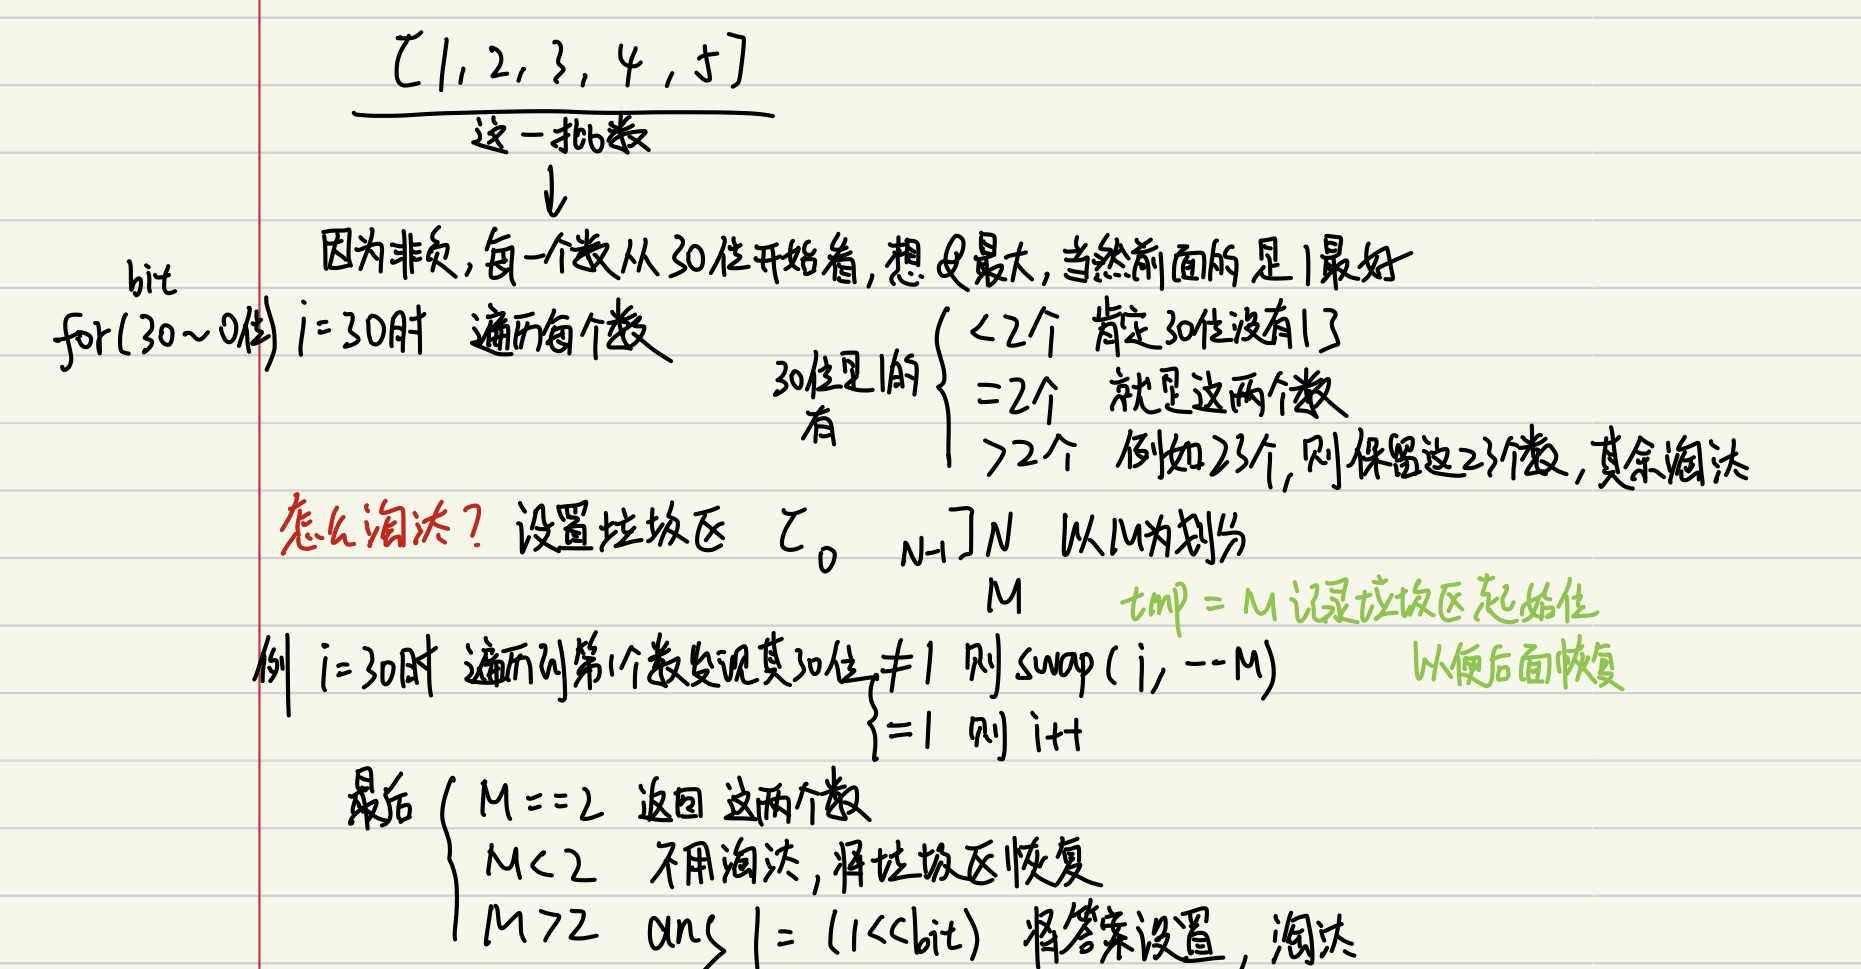 [1, 2, 3, 4, 5]
这一批数
↓
因为非负,每一个数从30位开始看,想&最大,当然前面的是1最好
bit
for(30~0位) i=30时 遍历每个数
30位是1的有
<2个 肯定30位没有1了
=2个 就是这两个数
>2个 例如23个,则保留这23个数,其余淘汰
怎么淘汰? 设置垃圾区 [0 N-1]N 以M为划分
M
tmp = M 记录垃圾区起始位
以便后面恢复
例 i=30时 遍历到第i个数发现其30位 ≠1 则 swap(i, --M)
=1 则 i++
最后
M==2 返回这两个数
M<2 不用淘汰,将垃圾区恢复
M>2 ans |= (1<<bit) 将答案设置,淘汰